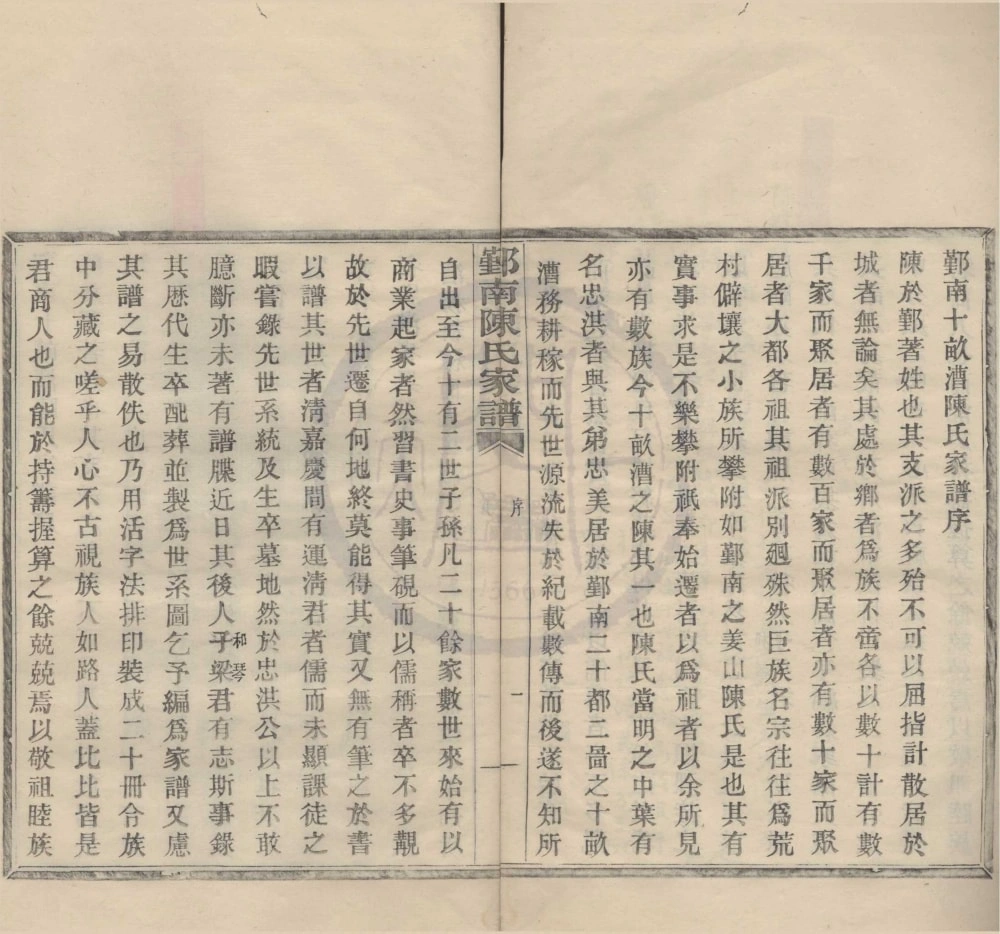 鄞南十畝漕陳氏家譜序
陳於鄞著姓也其支派之多殆不可以屈指計散居於
城者無論矣其處於鄉者爲族不啻各以數十計有數
千家而聚居者有數百家而聚居者亦有數十家而聚
居者大都各祖其祖派別廻殊然巨族名宗往往爲荒
村僻壤之小族所攀附如鄞南之姜山陳氏是也其有
實事求是不樂攀附祇奉始遷者以爲祖者以余所見
亦有數族今十畝漕之陳其一也陳氏當明之中葉有
名忠洪者與其弟忠美居於鄞南二十都二啚之十畝
漕務耕稼而先世源流失於紀載數傳而後遂不知所
鄞南陳氏家譜
序
一
自出至今十有二世子孫凡二十餘家數世來始有以
商業起家者然習書史事筆硯而以儒稱者卒不多覯
故於先世遷自何地終莫能得其實又無有筆之於書
以譜其世者清嘉慶間有運淸君者儒而未顯課徒之
暇嘗錄先世系統及生卒墓地然於忠洪公以上不敢
臆斷亦未著有譜牒近日其後人和琴子梁君有志斯事錄
其歷代生卒配葬並製爲世系圖乞予編爲家譜又慮
其譜之易散佚也乃用活字法排印裝成二十冊令族
中分藏之嗟乎人心不古視族人如路人蓋比比皆是
君商人也而能於持籌握算之餘兢兢焉以敬祖睦族